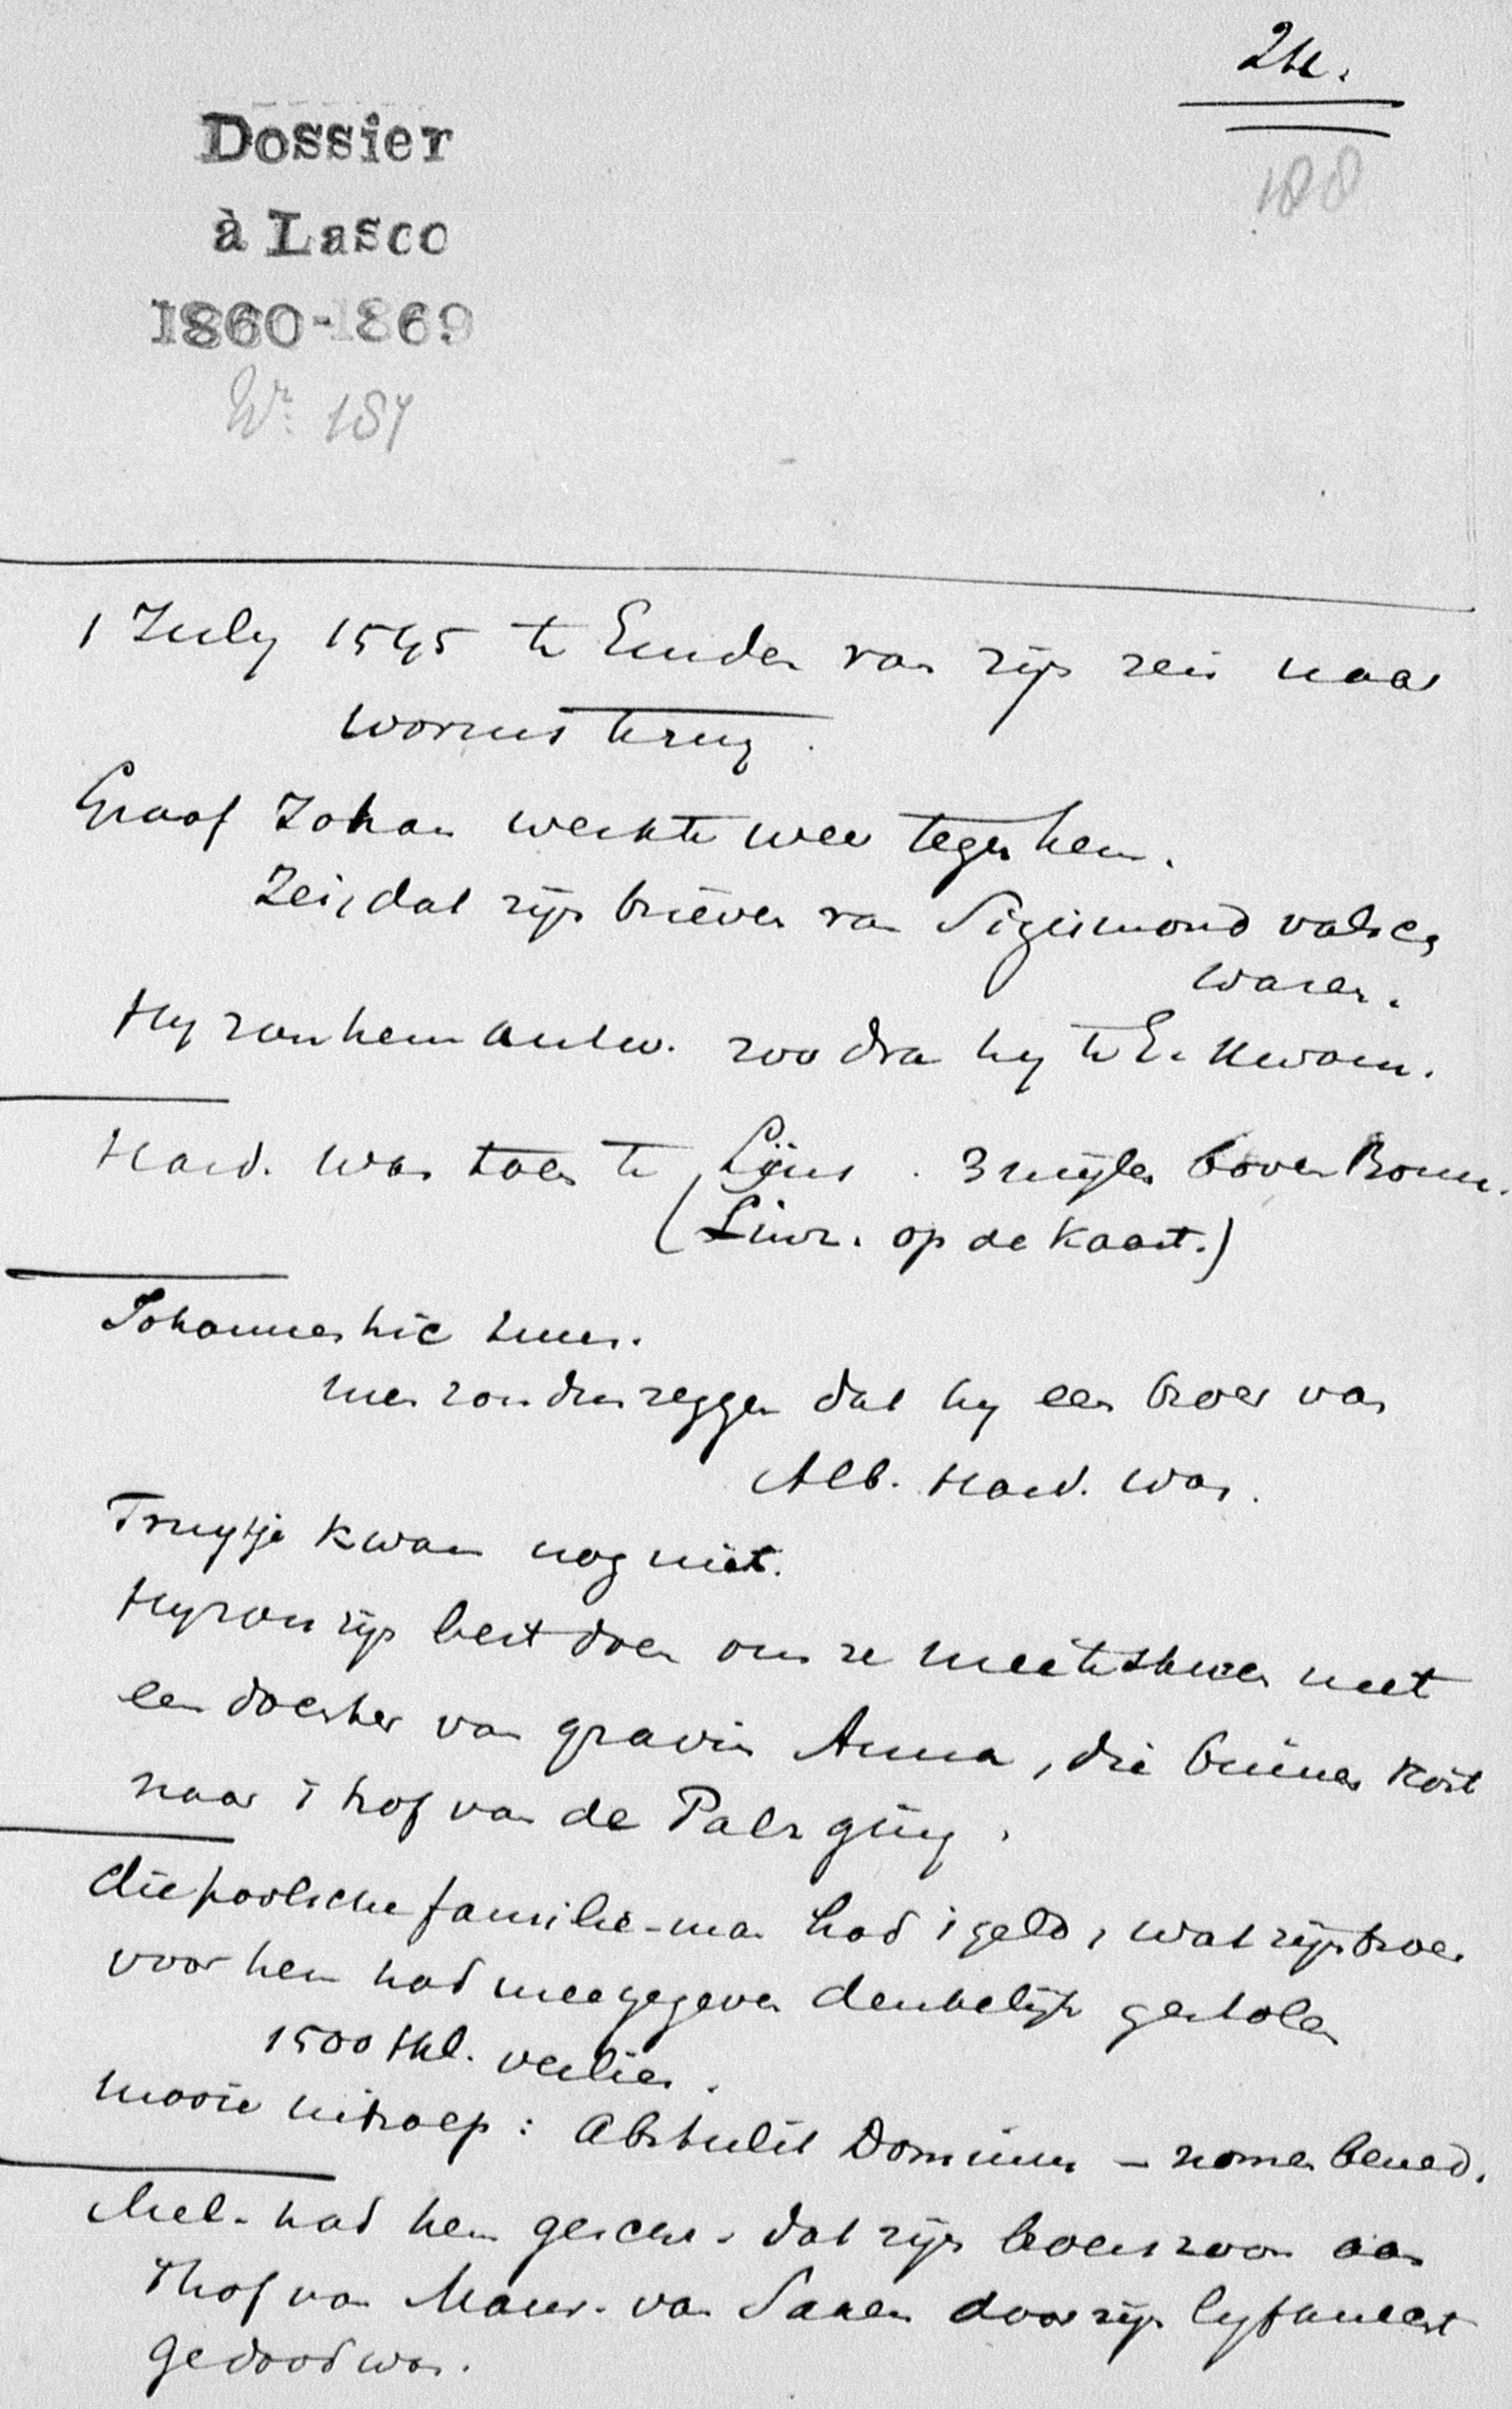 24.
188
Dossier
à Lasco
1860-1869
Nr. 187
1 July 1545 te Emden van zijn reis naar
Worms terug.
Graaf Johan werkte weer tegen hem.
Zei, dat zijn brieven van Sigismond valsch
waren.
Hy zou hem antw. zoodra hy te E. kwam.
Hard. was toen te Lijns. 3 mijlen boven Bonn.
(Linz. op de kaart.)
Johannes hic
men zou dus zeggen dat hy een broer van
Alb. Hard. was.
Truytje kwam nog niet.
Hy zou zijn best doen om ze mee te sturen met
een dochter van gravin Anna, die binnen kort
naar 't hof van de Palz ging.
die poolsche familie-man had 't geld, wat zijn broer
voor hem had meegegeven denkelijk gestolen
1500 thl. verlies.
mooie uitroep: Abstulit Dominus – nomen bened.
Mel. had hem geschr. dat zijn broers zoon aan
't hof van Maur. van Saxen door zijn lyfknecht
gedood was.